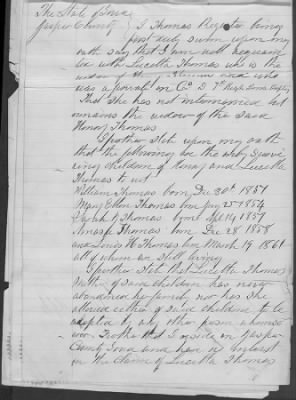 The State of Iowa
Jasper County } I Thomas Register being
first duly sworn upon my
oath say that I am well acquain
ted with Lucetta Thomas who is the
widow of and who
was a private in Co D 7th Regt Iowa
That she has not intermarried but
remains the widow of the said
Henry Thomas
I further state upon my oath
that the following are the only surviv
ing children of Henry and Lucetta
Thomas to wit
William Thomas born Dec 30th 1851
Mary Ellen Thomas born Jany 25th 1854
Thomas born Apl 14 1857
Thomas born Dec 28 1858
and Louis H Thomas born March 19 1861
all of whom are still living
I further state that Lucetta Thomas
Mother of said children has never
abandoned her family nor has she
allowed either of said children to be
adopted by any other person whomso
ever Further that I reside in Jasper
County Iowa and have no interest
in the claim of Lucetta Thomas